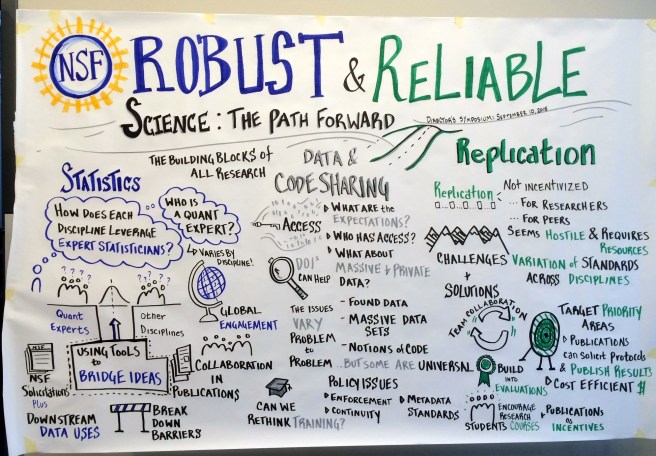 NSF
ROBUST & RELIABLE
SCIENCE: THE PATH FORWARD
DIRECTOR'S SYMPOSIUM: SEPTEMBER 10, 2018
THE BUILDING BLOCKS OF
ALL RESEARCH
STATISTICS
HOW DOES EACH
DISCIPLINE LEVERAGE
EXPERT STATISTICIANS?
WHO IS
A QUANT
EXPERT?
VARIES BY
DISCIPLINE!
? ? ? ?
? ? ? ?
Quant
Experts
Other
Disciplines
USING TOOLS
to
BRIDGE IDEAS
NSF
Solicitations
Plus
DOWNSTREAM
DATA USES
BREAK
DOWN
BARRIERS
GLOBAL
ENGAGEMENT
COLLABORATION
IN
PUBLICATIONS
DATA &
CODE SHARING
ACCESS
WHAT ARE the
EXPECTATIONS?
WHO HAS ACCESS?
WHAT ABOUT
MASSIVE & PRIVATE
DATA?
- FOUND DATA
- MASSIVE DATA
SETS
- NOTIONS of CODE
DOIs
CAN HELP
THE ISSUES
VARY
PROBLEM
to
PROBLEM
...BUT SOME ARE UNIVERSAL
POLICY ISSUES
ENFORCEMENT
CONTINUITY
METADATA
STANDARDS
CAN WE
RETHINK TRAINING?
Replication
Replication
NOT INCENTIVIZED
... FOR RESEARCHERS
... FOR PEERS
SEEMS HOSTILE & REQUIRES
RESOURCES
VARIATION of STANDARDS
ACROSS DISCIPLINES
CHALLENGES
+
SOLUTIONS
TEAM COLLABORATION
TARGET PRIORITY
AREAS
PUBLICATIONS
can solicit Protocols
& PUBLISH RESULTS
COST EFFICIENT $
BUILD
INTO
EVALUATIONS
ENCOURAGE
RESEARCH
STUDENTS COURSES
PUBLICATIONS
as
INCENTIVES